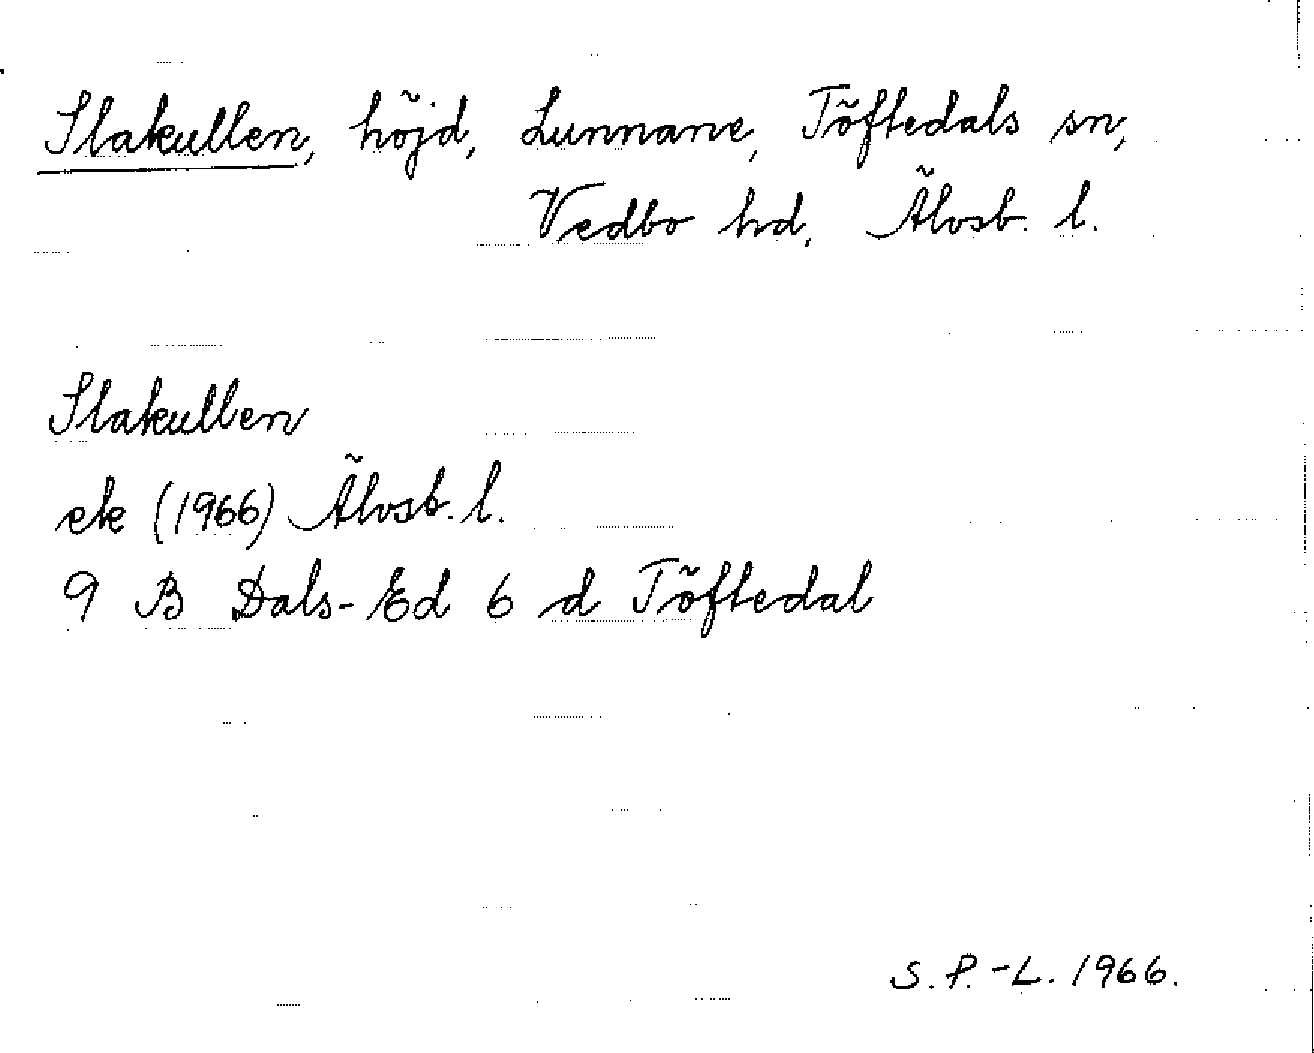 Slakullen, höjd, Lunnane, Töftedals sn,
Vedbo hd, Älvsb. l.
Slakullen
ek (1966) Älvsb. l.
9 B Dals-Ed 6 d Töftedal
S. P.-L. 1966.